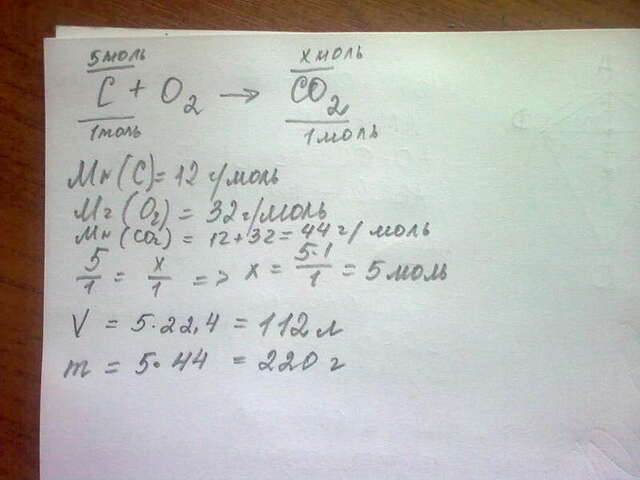 5моль х моль
C + O2 → CO2
1моль 1моль
Mr(C) = 12 г/моль
Mr(O2) = 32 г/моль
Mr(CO2) = 12+32 = 44 г/ моль
5/1 = x/1 => x = 5·1/1 = 5 моль
V = 5·22,4 = 112 л
m = 5·44 = 220 г